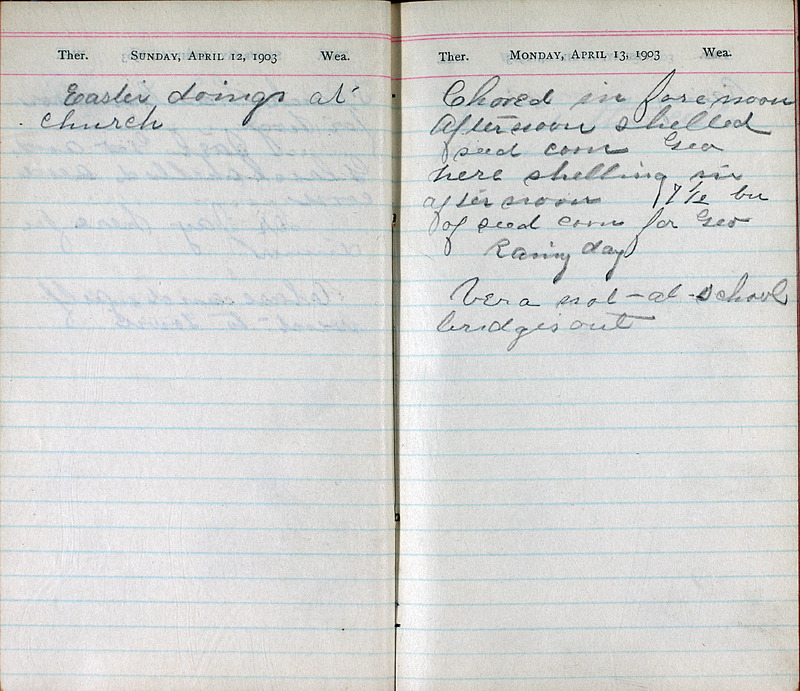 Ther. SUNDAY, APRIL 12, 1903 Wea.
Easter doings at
church
Ther. MONDAY, APRIL 13, 1903 Wea.
Chored in forenoon
afternoon shelled
seed corn Geo
here shelling in
afternoon 17½ bu
of seed corn for Geo
Rainy day
Vera not-at-school
bridges out